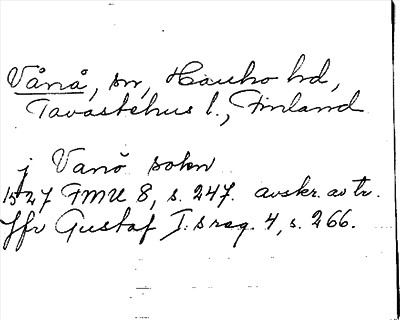 Vånå, sn, Hauho hd,
Tavastehus l., Finland
j Vanö sokn
1527 FMU 8, s. 247. avskr. av tr.
Jfr Gustaf I:s reg. 4, s. 266.